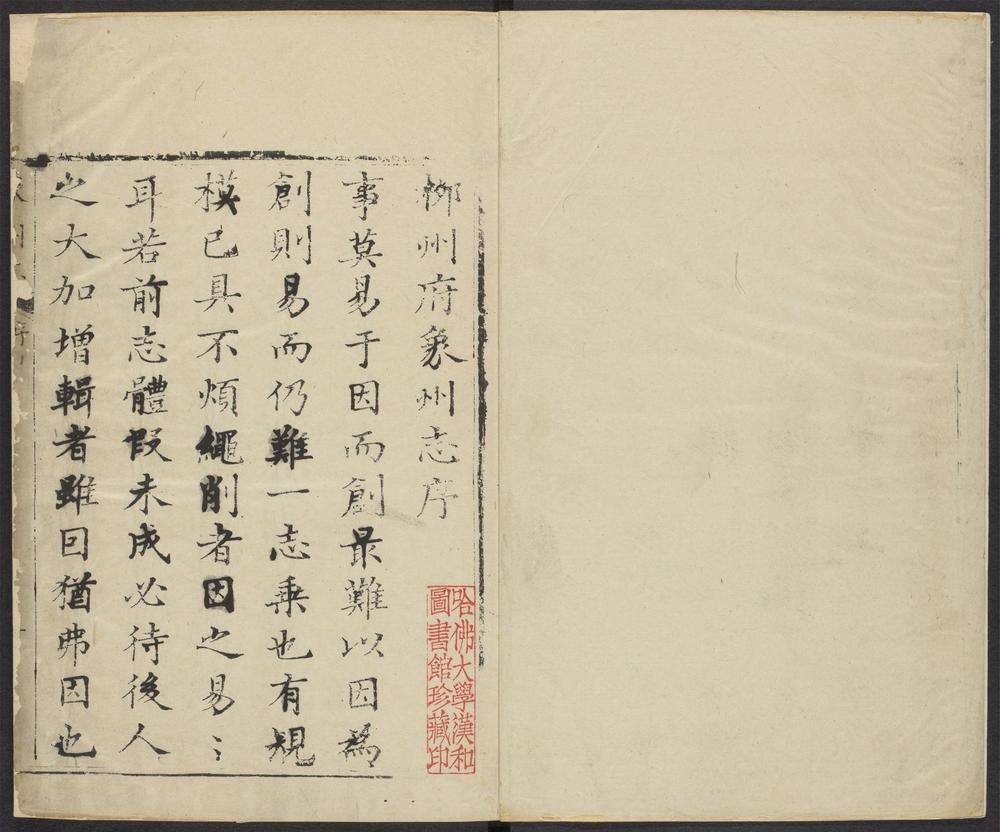 柳州府象州志序
事莫易于因而創最難以因為
創則易而仍難一志乘也有規
模已具不煩繩削者因之易〻
耳若前志體段未成必待後人
之大加增輯者雖因猶弗因也
哈佛大學漢和
圖書館珍藏印